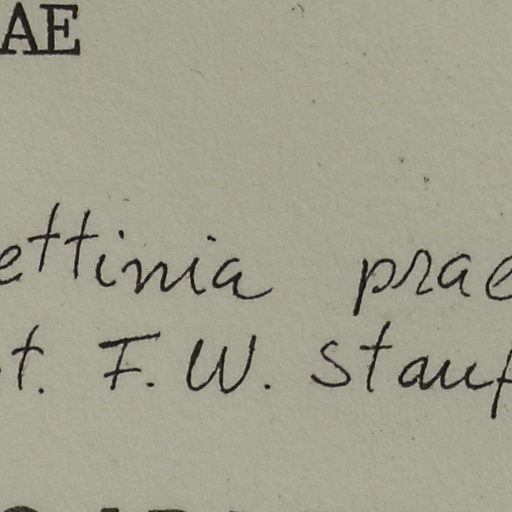 AE
ettinia prae
t. F. W. Stauf